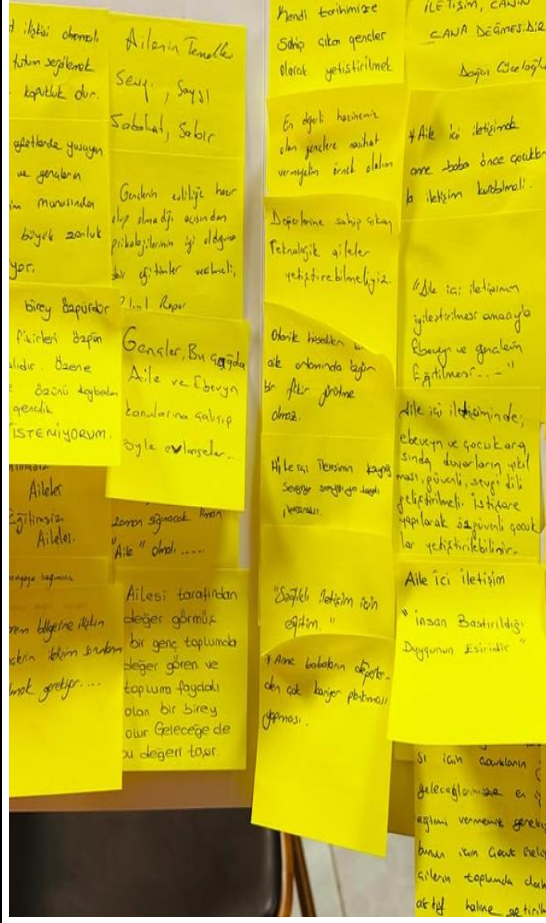 t ilişkisi olmamalı
tutum sergilemek
kopukluk olur.
afetlerde yaşayan
ve gençlerin
büyük zorluk
yor.
birey özgürdür
fikirleri özgün
alıdır. Özene
özünü kaybeden
gençlik
İSTENİYORUM.
Aileler
Eğitimsiz
Aileler.
Ailenin Temeller
Sevgi, Saygı
Sabahat, Sabır
Gençlerin evliliğe hazır
olup olmadığı açısından
psikolojilerinin iyi olduğuna
dair eğitimler verilmeli,
Gençler, Bu çağda
Aile ve Ebeveyn
konularına çalışıp
öyle evlenseler..
zaman sığınacak liman
"Aile" olmalı.....
Ailesi tarafından
değer görmüş
bir genç toplumda
değer gören ve
topluma faydalı
olan bir birey
olur Geleceğe de
bu değeri taşır.
Kendi tarihimize
Sahip çıkan gençler
olarak yetiştirilmek
En değerli hazinemiz
olan gençlere nasihat
vermeyelim örnek olalım
Değerlerine sahip çıkan
Teknolojik aileler
yetiştirebilmeliyiz.
aile ortamında özgün
bir fikir yürütme
olmaz.
"Sağlıklı iletişim için
eğitim."
Anne babaların
çok kariyer planlaması
yapması.
İLETİŞİM, CANIN
CANA DEĞMESİDİR
Doğan Cüceloğlu
Aile içi iletişimde
anne baba önce çocukları
la iletişim kurabilmeli.
"Aile içi iletişimin
iyileştirilmesi amacıyla
Ebeveyn ve gençlerin
Eğitilmesi..."
Aile içi iletişiminde;
ebeveyn ve çocuk ara
sında duvarların yıkıl
ması, güvenli, sevgi dili
geliştirilmeli. İstişare
yapılarak özgüvenli çocuk
lar yetiştirilebilinir.
Aile içi iletişim
"İnsan Bastırıldığı
Duygunun Esiridir"
sı için çocukların
geleceğimize en iy
eğitimi vermemiz gerekiy
bunun için Çocuk
ailenin toplumda daha
aktif haline getiril